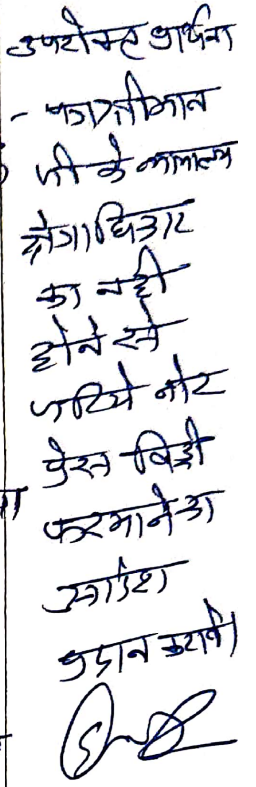 उपरोक्त प्रार्थना
- पत्र श्रीमान
जी के न्यायालय
क्षेत्राधिकार
का नही
होने से
जरिये नोट
प्रेस विड्रो
फरमाने का
आदेश
प्रदान करावें।